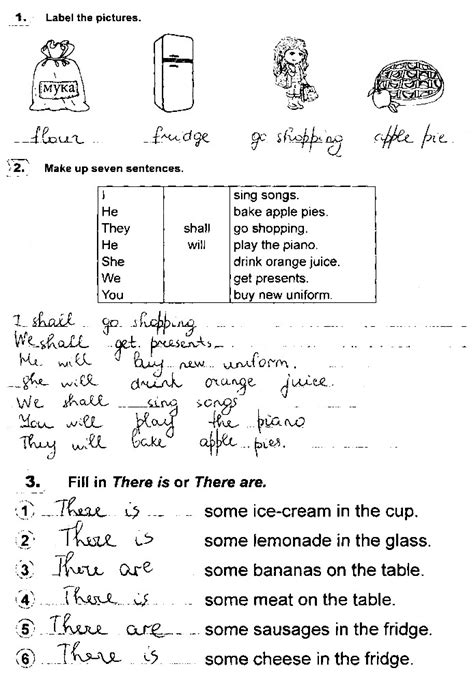 1. Label the pictures.
мука
flour frudge go shopping apple pie
2. Make up seven sentences.
I sing songs.
He bake apple pies.
They shall go shopping.
He will play the piano.
She drink orange juice.
We get presents.
You buy new uniform.
I shall go shopping
We shall get presents
He will buy new uniform.
She will drink orange juice.
We shall sing songs
You will play the piano
They will bake apple pies.
3. Fill in There is or There are.
1 There is some ice-cream in the cup.
2 There is some lemonade in the glass.
3 There are some bananas on the table.
4 There is some meat on the table.
5 There are some sausages in the fridge.
6 There is some cheese in the fridge.